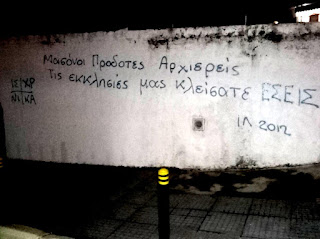 Μασόνοι Προδότες Αρχιερείς
Τις εκκλησιές μας Κλείσατε ΕΣΕΙΣ
ΙΣ ΧΡ
ΝΙ ΚΑ
ΙΛ 2012